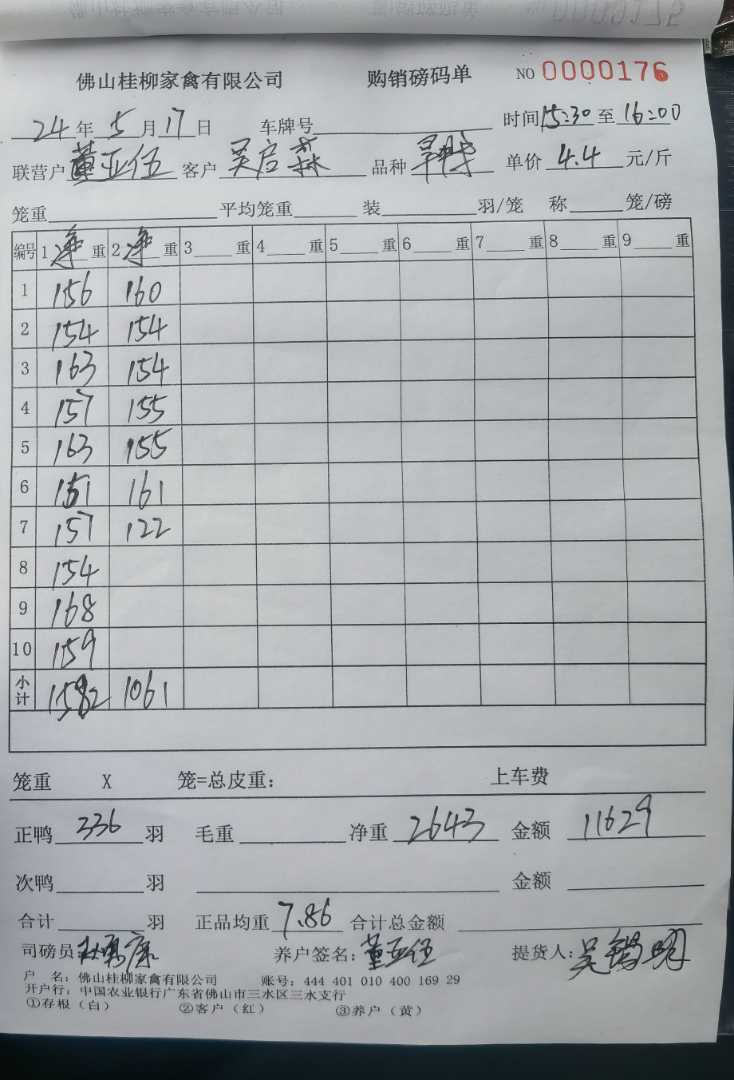 佛山桂柳家禽有限公司 购销磅码单 NO 0000176
24年5月17日 车牌号 时间15:30至16:00
联营户 董亚伍 客户 吴启森 品种 单价 4.4 元/斤
笼重 平均笼重 装 羽/笼 称 笼/磅
编号 1净重 2净重 3 重 4 重 5 重 6 重 7 重 8 重 9 重
1 156 160
2 154 154
3 163 154
4 157 155
5 163 155
6 151 161
7 157 122
8 154
9 168
10 159
小计 1582 1061
笼重 X 笼=总皮重: 上车费
正鸭 336 羽 毛重 净重 2643 金额 11629
次鸭 羽 金额
合计 羽 正品均重 7.86 合计总金额
司磅员: 养户签名: 董亚伍 提货人: 吴锡明
户 名: 佛山桂柳家禽有限公司 账号: 444 401 010 400 169 29
开户行: 中国农业银行广东省佛山市三水区三水支行
①存根(白) ②客户(红) ③养户(黄)